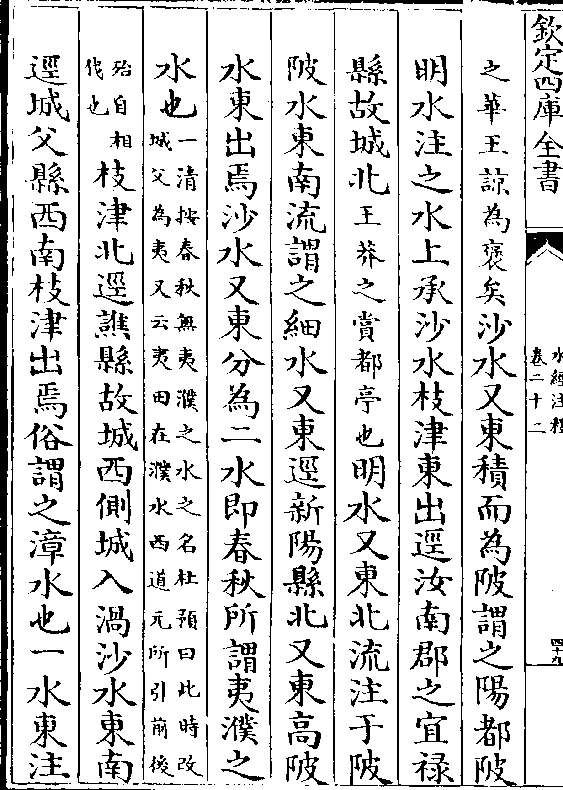 欽定四庫全書
水經注釋
卷二十二
四十九
之華王諒為褒矣沙水又東積而為陂謂之陽都陂
明水注之水上承沙水枝津東出逕汝南郡之宜禄
縣故城北王莽之賞都亭也明水又東北流注于陂
陂水東南流謂之細水又東逕新陽縣北又東高陂
水東出焉沙水又東分為二水即春秋所謂夷濮之
水也一清按春秋無夷濮之水之名杜預曰此時改
城父為夷又云夷田在濮水西道元所引前後
殆自相
伐也枝津北逕譙縣故城西側城入渦沙水東南
逕城父縣西南枝津出焉俗謂之漳水也一水東注